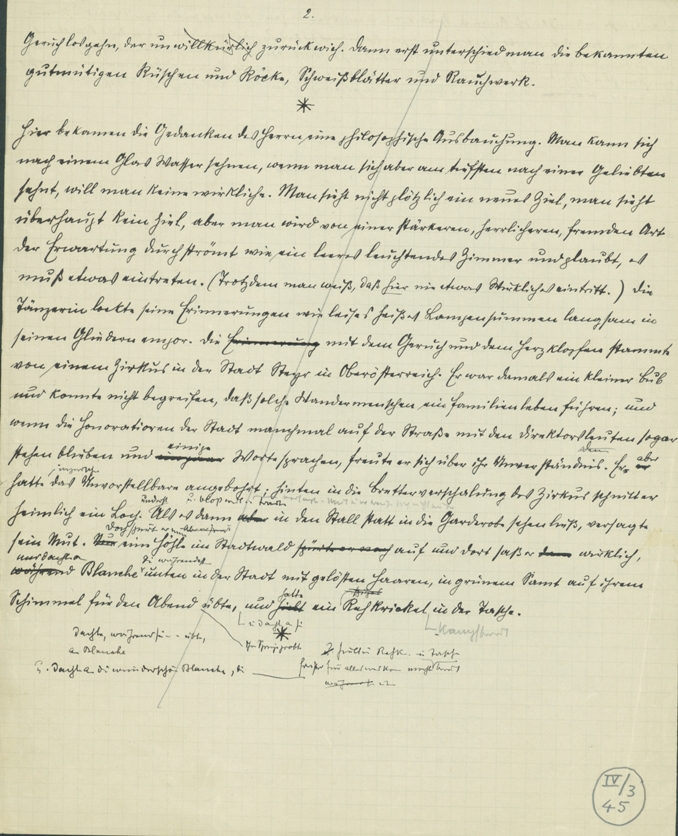 2.
Geruch losgehn, der unwillkürlich zurückwich. Dann erst unterschied man die bekannten
gutmütigen Rüschen und Röcke, Schweißblätter und Rauchwerk.
*
Hier bekamen die Gedanken des Herrn eine philosophische Ausbauchung. Man kann sich
nach einem Glas Wasser sehnen, wenn man sich aber am tiefsten nach einer Geliebten
sehnt, will man keine wirkliche. Man sieht nicht plötzlich ein neues Ziel, man sieht
überhaupt kein Ziel, aber man wird von einer stärkeren, herrlicheren, fremden Art
der Erwartung durchströmt wie ein leeres leuchtendes Zimmer und glaubt, es
muß etwas eintreten. (Trotzdem man weiß, daß hier nie etwas Wirkliches eintritt.) Die
Tänzerin lockte seine Erinnerungen wie leises heißes Lampensummen langsam in
seinen Gliedern empor. Die Erinnerung mit dem Geruch und dem Herzklopfen stammte
von einem Zirkus in der Stadt Steyr in Oberösterreich. Er war damals ein kleiner Bub
und konnte nicht begreifen, daß solche Wandermenschen ein Familienleben führen; und
wenn die Honoratioren der Stadt manchmal auf der Straße mit den Direktorsleuten sogar
stehen blieben und einige Worte sprachen, freute er sich über ihr Unverständnis. Er aber
hatte das Unvorstellbare angebohrt: hinten in die Bretterverschalung des Zirkus schnitt er
heimlich ein Loch. Als es dann aber in den Stall statt in die Garderobe sehen ließ, versagte
sein Mut. Nun eine Höhle im Stadtwald auf und dort saß er dann wirklich,
während Blanche unten in der Stadt mit gelösten Haaren, in grünem Samt auf ihrem
Schimmel für den Abend übte, und hatte ein Rehkrickel in der Tasche.
*
dachte, während sie - übte,
an Blanche
dachte an die wunderschöne Blanche, die
IV/3
45